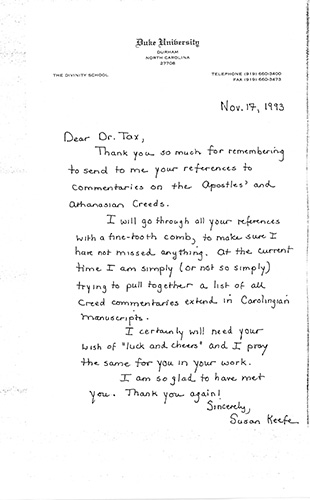 Duke University
DURHAM
NORTH CAROLINA
27706
THE DIVINITY SCHOOL
TELEPHONE (919) 660-3400
FAX (919) 660-3473
Nov. 17, 1993
Dear Dr. Tax,
Thank you so much for remembering
to send to me your references to
commentaries on the Apostles' and
Athanasian Creeds.
I will go through all your references
with a fine-tooth comb, to make sure I
have not missed anything. At the current
time I am simply (or not so simply)
trying to pull together a list of all
Creed commentaries extend in Carolingian
manuscripts.
I certainly will need your
wish of "luck and cheers" and I pray
the same for you in your work.
I am so glad to have met
you. Thank you again!
Sincerely,
Susan Keefe